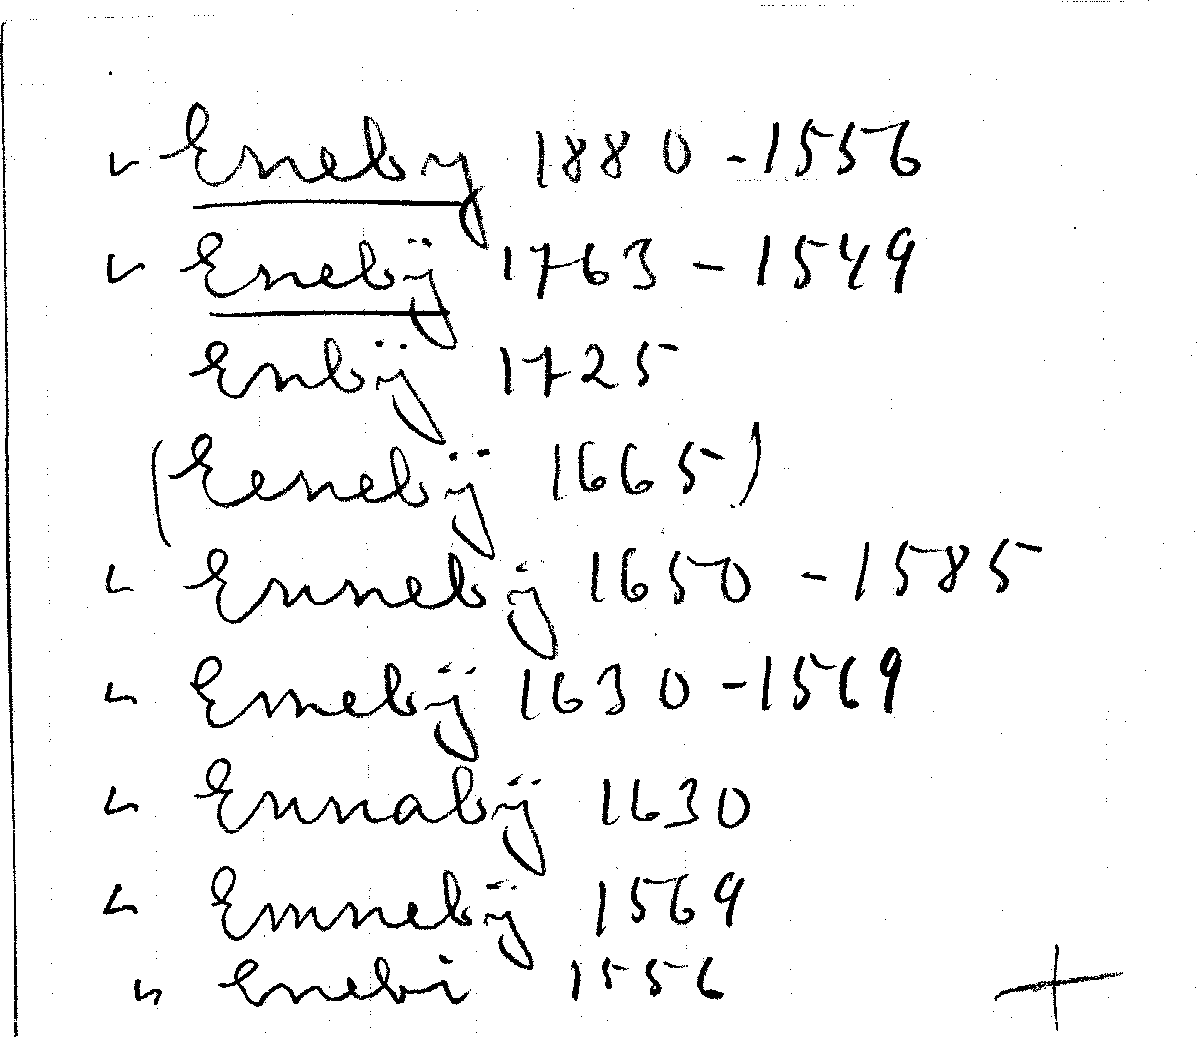 ✓ Eneby 1880 - 1556
✓ Enebÿ 1763 - 1549
Enbÿ 1725
(Eenebÿ 1665)
✓ Ennebÿ 1650 - 1585
✓ Emebÿ 1630 - 1569
✓ Ennabÿ 1630
✓ Emnebÿ 1569
✓ Enebi 1556
+